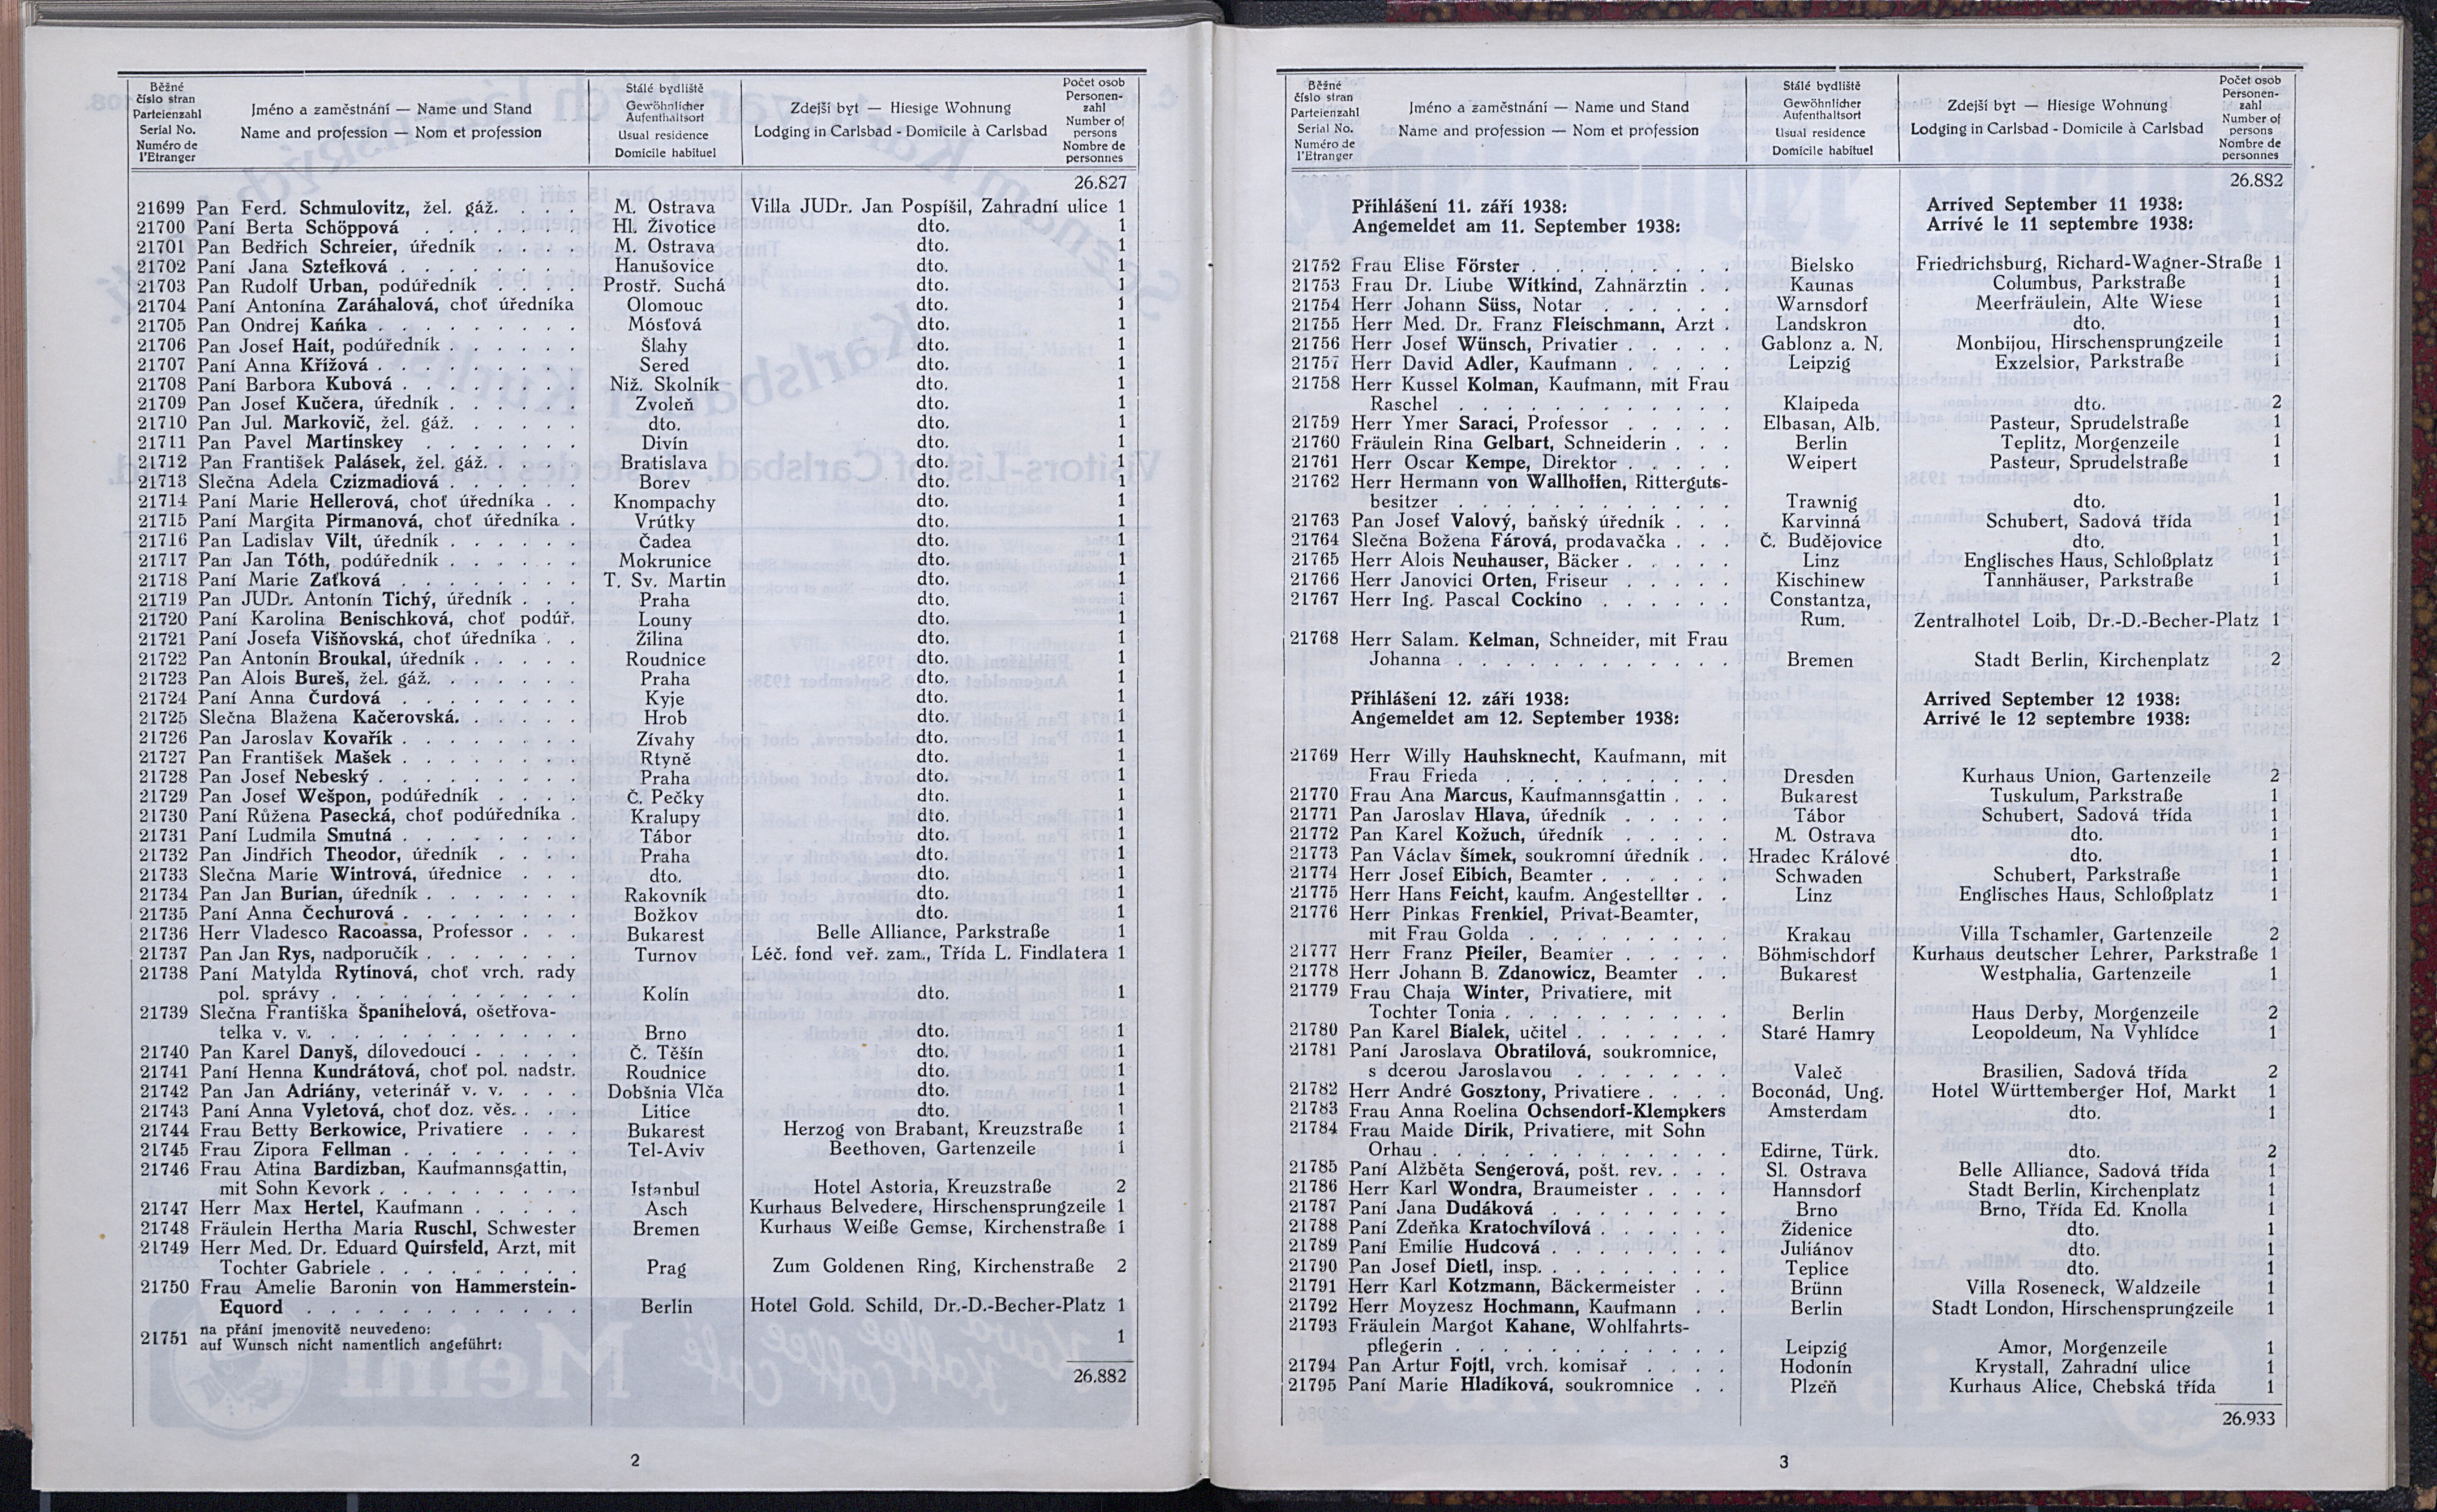 Běžné
číslo stran
Parteienzahl
Serial No.
Numéro de
l'Etranger
Jméno a zaměstnání — Name und Stand
Name and profession — Nom et profession
Stálé bydliště
Gewöhnlicher
Aufenthaltsort
Usual residence
Domicile habituel
Zdejší byt — Hiesige Wohnung
Lodging in Carlsbad - Domicile à Carlsbad
Počet osob
Personen-
zahl
Number of
persons
Nombre de
personnes
26.827
21699 Pan Ferd. Schmulovitz, žel. gáž. . . . M. Ostrava Villa JUDr. Jan Pospíšil, Zahradní ulice 1
21700 Paní Berta Schöppová . . . . . . . Hl. Životice dto. 1
21701 Pan Bedřich Schreier, úředník . . . . M. Ostrava dto. 1
21702 Paní Jana Sztefková . . . . . . . . Hanušovice dto. 1
21703 Pan Rudolf Urban, podúředník . . . . Prostř. Suchá dto. 1
21704 Paní Antonína Zaráhalová, choť úředníka Olomouc dto. 1
21705 Pan Ondrej Kaňka . . . . . . . . . Mósťová dto. 1
21706 Pan Josef Hait, podúředník . . . . . . Šlahy dto. 1
21707 Paní Anna Křížová . . . . . . . . . Sered dto. 1
21708 Paní Barbora Kubová . . . . . . . . Niž. Skolník dto. 1
21709 Pan Josef Kučera, úředník . . . . . . Zvoleň dto. 1
21710 Pan Jul. Markovič, žel. gáž. . . . . . dto. dto. 1
21711 Pan Pavel Martinskey . . . . . . . Divín dto. 1
21712 Pan František Palásek, žel. gáž. . . . . Bratislava dto. 1
21713 Slečna Adela Czizmadiová . . . . . . Borev dto. 1
21714 Paní Marie Hellerová, choť úředníka . . Knompachy dto. 1
21715 Paní Margita Pirmanová, choť úředníka . Vrútky dto. 1
21716 Pan Ladislav Vilt, úředník . . . . . . Čadea dto. 1
21717 Pan Jan Tóth, podúředník . . . . . . Mokrunice dto. 1
21718 Paní Marie Zaťková . . . . . . . . T. Sv. Martin dto. 1
21719 Pan JUDr. Antonín Tichý, úředník . . . Praha dto. 1
21720 Paní Karolina Benischková, choť podúř. Louny dto. 1
21721 Paní Josefa Višňovská, choť úředníka . . Žilina dto. 1
21722 Pan Antonín Broukal, úředník . . . . . Roudnice dto. 1
21723 Pan Alois Bureš, žel. gáž. . . . . . . Praha dto. 1
21724 Paní Anna Čurdová . . . . . . . . Kyje dto. 1
21725 Slečna Blažena Kačerovská. . . . . . . Hrob dto. 1
21726 Pan Jaroslav Kovařík . . . . . . . . Zívahy dto. 1
21727 Pan František Mašek . . . . . . . . Rtyně dto. 1
21728 Pan Josef Nebeský . . . . . . . . . Praha dto. 1
21729 Pan Josef Wešpon, podúředník . . . . Č. Pečky dto. 1
21730 Paní Růžena Pasecká, choť podúředníka . Kralupy dto. 1
21731 Paní Ludmila Smutná . . . . . . . . Tábor dto. 1
21732 Pan Jindřich Theodor, úředník . . . . Praha dto. 1
21733 Slečna Marie Wintrová, úřednice . . . dto. dto. 1
21734 Pan Jan Burian, úředník . . . . . . . Rakovník dto. 1
21735 Paní Anna Čechurová . . . . . . . . Božkov dto. 1
21736 Herr Vladesco Racoassa, Professor . . . Bukarest Belle Alliance, Parkstraße 1
21737 Pan Jan Rys, nadporučík . . . . . . . Turnov Léč. fond veř. zam., Třída L. Findlatera 1
21738 Paní Matylda Rytinová, choť vrch. rady
pol. správy . . . . . . . . . . Kolín dto. 1
21739 Slečna Františka Španihelová, ošetřova-
telka v. v. . . . . . . . . . . Brno dto. 1
21740 Pan Karel Danyš, dílovedoucí . . . . . Č. Těšín dto. 1
21741 Paní Henna Kundrátová, choť pol. nadstr. Roudnice dto. 1
21742 Pan Jan Adriány, veterinář v. v. . . . Dobšnia Vlča dto. 1
21743 Paní Anna Vyletová, choť doz. věs. . . . Litice dto. 1
21744 Frau Betty Berkowice, Privatiere . . . Bukarest Herzog von Brabant, Kreuzstraße 1
21745 Frau Zipora Fellman . . . . . . . . Tel-Aviv Beethoven, Gartenzeile 1
21746 Frau Atina Bardizban, Kaufmannsgattin,
mit Sohn Kevork . . . . . . . . Istanbul Hotel Astoria, Kreuzstraße 2
21747 Herr Max Hertel, Kaufmann . . . . . Asch Kurhaus Belvedere, Hirschensprungzeile 1
21748 Fräulein Hertha Maria Ruschl, Schwester Bremen Kurhaus Weiße Gemse, Kirchenstraße 1
21749 Herr Med. Dr. Eduard Quirsfeld, Arzt, mit
Tochter Gabriele . . . . . . . . Prag Zum Goldenen Ring, Kirchenstraße 2
21750 Frau Amelie Baronin von Hammerstein-
Equord . . . . . . . . . . . . Berlin Hotel Gold. Schild, Dr.-D.-Becher-Platz 1
21751 na přání jmenovitě neuvedeno:
auf Wunsch nicht namentlich angeführt: 1
26.882
2
Běžné
číslo stran
Parteienzahl
Serial No.
Numéro de
l'Etranger
Jméno a zaměstnání — Name und Stand
Name and profession — Nom et profession
Stálé bydliště
Gewöhnlicher
Aufenthaltsort
Usual residence
Domicile habituel
Zdejší byt — Hiesige Wohnung
Lodging in Carlsbad - Domicile à Carlsbad
Počet osob
Personen-
zahl
Number of
persons
Nombre de
personnes
26.882
Přihlášení 11. září 1938: Arrived September 11 1938:
Angemeldet am 11. September 1938: Arrivé le 11 septembre 1938:
21752 Frau Elise Förster . . . . . . . . . Bielsko Friedrichsburg, Richard-Wagner-Straße 1
21753 Frau Dr. Liube Witkind, Zahnärztin . . Kaunas Columbus, Parkstraße 1
21754 Herr Johann Süss, Notar . . . . . . Warnsdorf Meerfräulein, Alte Wiese 1
21755 Herr Med. Dr. Franz Fleischmann, Arzt . Landskron dto. 1
21756 Herr Josef Wünsch, Privatier . . . . . Gablonz a. N. Monbijou, Hirschensprungzeile 1
21757 Herr David Adler, Kaufmann . . . . . Leipzig Exzelsior, Parkstraße 1
21758 Herr Kussel Kolman, Kaufmann, mit Frau
Raschel . . . . . . . . . . . . Klaipeda dto. 2
21759 Herr Ymer Saraci, Professor . . . . . Elbasan, Alb. Pasteur, Sprudelstraße 1
21760 Fräulein Rina Gelbart, Schneiderin . . . Berlin Teplitz, Morgenzeile 1
21761 Herr Oscar Kempe, Direktor . . . . . Weipert Pasteur, Sprudelstraße 1
21762 Herr Hermann von Wallhoffen, Ritterguts-
besitzer . . . . . . . . . . . . Trawnig dto. 1
21763 Pan Josef Valový, baňský úředník . . . Karvinná Schubert, Sadová třída 1
21764 Slečna Božena Fárová, prodavačka . . . Č. Budějovice dto. 1
21765 Herr Alois Neuhauser, Bäcker . . . . . Linz Englisches Haus, Schloßplatz 1
21766 Herr Janovici Orten, Friseur . . . . . Kischinew Tannhäuser, Parkstraße 1
21767 Herr Ing. Pascal Cockino . . . . . . Constantza,
Rum. Zentralhotel Loib, Dr.-D.-Becher-Platz 1
21768 Herr Salam. Kelman, Schneider, mit Frau
Johanna . . . . . . . . . . . . Bremen Stadt Berlin, Kirchenplatz 2
Přihlášení 12. září 1938: Arrived September 12 1938:
Angemeldet am 12. September 1938: Arrivé le 12 septembre 1938:
21769 Herr Willy Hauhsknecht, Kaufmann, mit
Frau Frieda . . . . . . . . . . Dresden Kurhaus Union, Gartenzeile 2
21770 Frau Ana Marcus, Kaufmannsgattin . . . Bukarest Tuskulum, Parkstraße 1
21771 Pan Jaroslav Hlava, úředník . . . . . Tábor Schubert, Sadová třída 1
21772 Pan Karel Kožuch, úředník . . . . . M. Ostrava dto. 1
21773 Pan Václav Šimek, soukromní úředník . Hradec Králové dto. 1
21774 Herr Josef Eibich, Beamter . . . . . . Schwaden Schubert, Parkstraße 1
21775 Herr Hans Feicht, kaufm. Angestellter . . Linz Englisches Haus, Schloßplatz 1
21776 Herr Pinkas Frenkiel, Privat-Beamter,
mit Frau Golda . . . . . . . . . Krakau Villa Tschamler, Gartenzeile 2
21777 Herr Franz Pfeiler, Beamter . . . . . Böhmischdorf Kurhaus deutscher Lehrer, Parkstraße 1
21778 Herr Johann B. Zdanowicz, Beamter . . Bukarest Westphalia, Gartenzeile 1
21779 Frau Chaja Winter, Privatiere, mit
Tochter Tonia . . . . . . . . . . Berlin Haus Derby, Morgenzeile 2
21780 Pan Karel Bialek, učitel . . . . . . . Staré Hamry Leopoldeum, Na Vyhlídce 1
21781 Paní Jaroslava Obratilová, soukromnice,
s dcerou Jaroslavou . . . . . . . Valeč Brasilien, Sadová třída 2
21782 Herr André Gosztony, Privatiere . . . . Boconád, Ung. Hotel Württemberger Hof, Markt 1
21783 Frau Anna Roelina Ochsendorf-Klempkers Amsterdam dto. 1
21784 Frau Maide Dirik, Privatiere, mit Sohn
Orhau . . . . . . . . . . . . . Edirne, Türk. dto. 2
21785 Paní Alžběta Sengerová, pošt. rev. . . . Sl. Ostrava Belle Alliance, Sadová třída 1
21786 Herr Karl Wondra, Braumeister . . . . Hannsdorf Stadt Berlin, Kirchenplatz 1
21787 Paní Jana Dudáková . . . . . . . . Brno Brno, Třída Ed. Knolla 1
21788 Paní Zdeňka Kratochvílová . . . . . . Židenice dto. 1
21789 Paní Emilie Hudcová . . . . . . . . Juliánov dto. 1
21790 Pan Josef Dietl, insp. . . . . . . . . Teplice dto. 1
21791 Herr Karl Kotzmann, Bäckermeister . . Brünn Villa Roseneck, Waldzeile 1
21792 Herr Moyzesz Hochmann, Kaufmann . . Berlin Stadt London, Hirschensprungzeile 1
21793 Fräulein Margot Kahane, Wohlfahrts-
pflegerin . . . . . . . . . . . . Leipzig Amor, Morgenzeile 1
21794 Pan Artur Fojtl, vrch. komisař . . . . Hodonín Krystall, Zahradní ulice 1
21795 Paní Marie Hladíková, soukromnice . . Plzeň Kurhaus Alice, Chebská třída 1
26.933
3